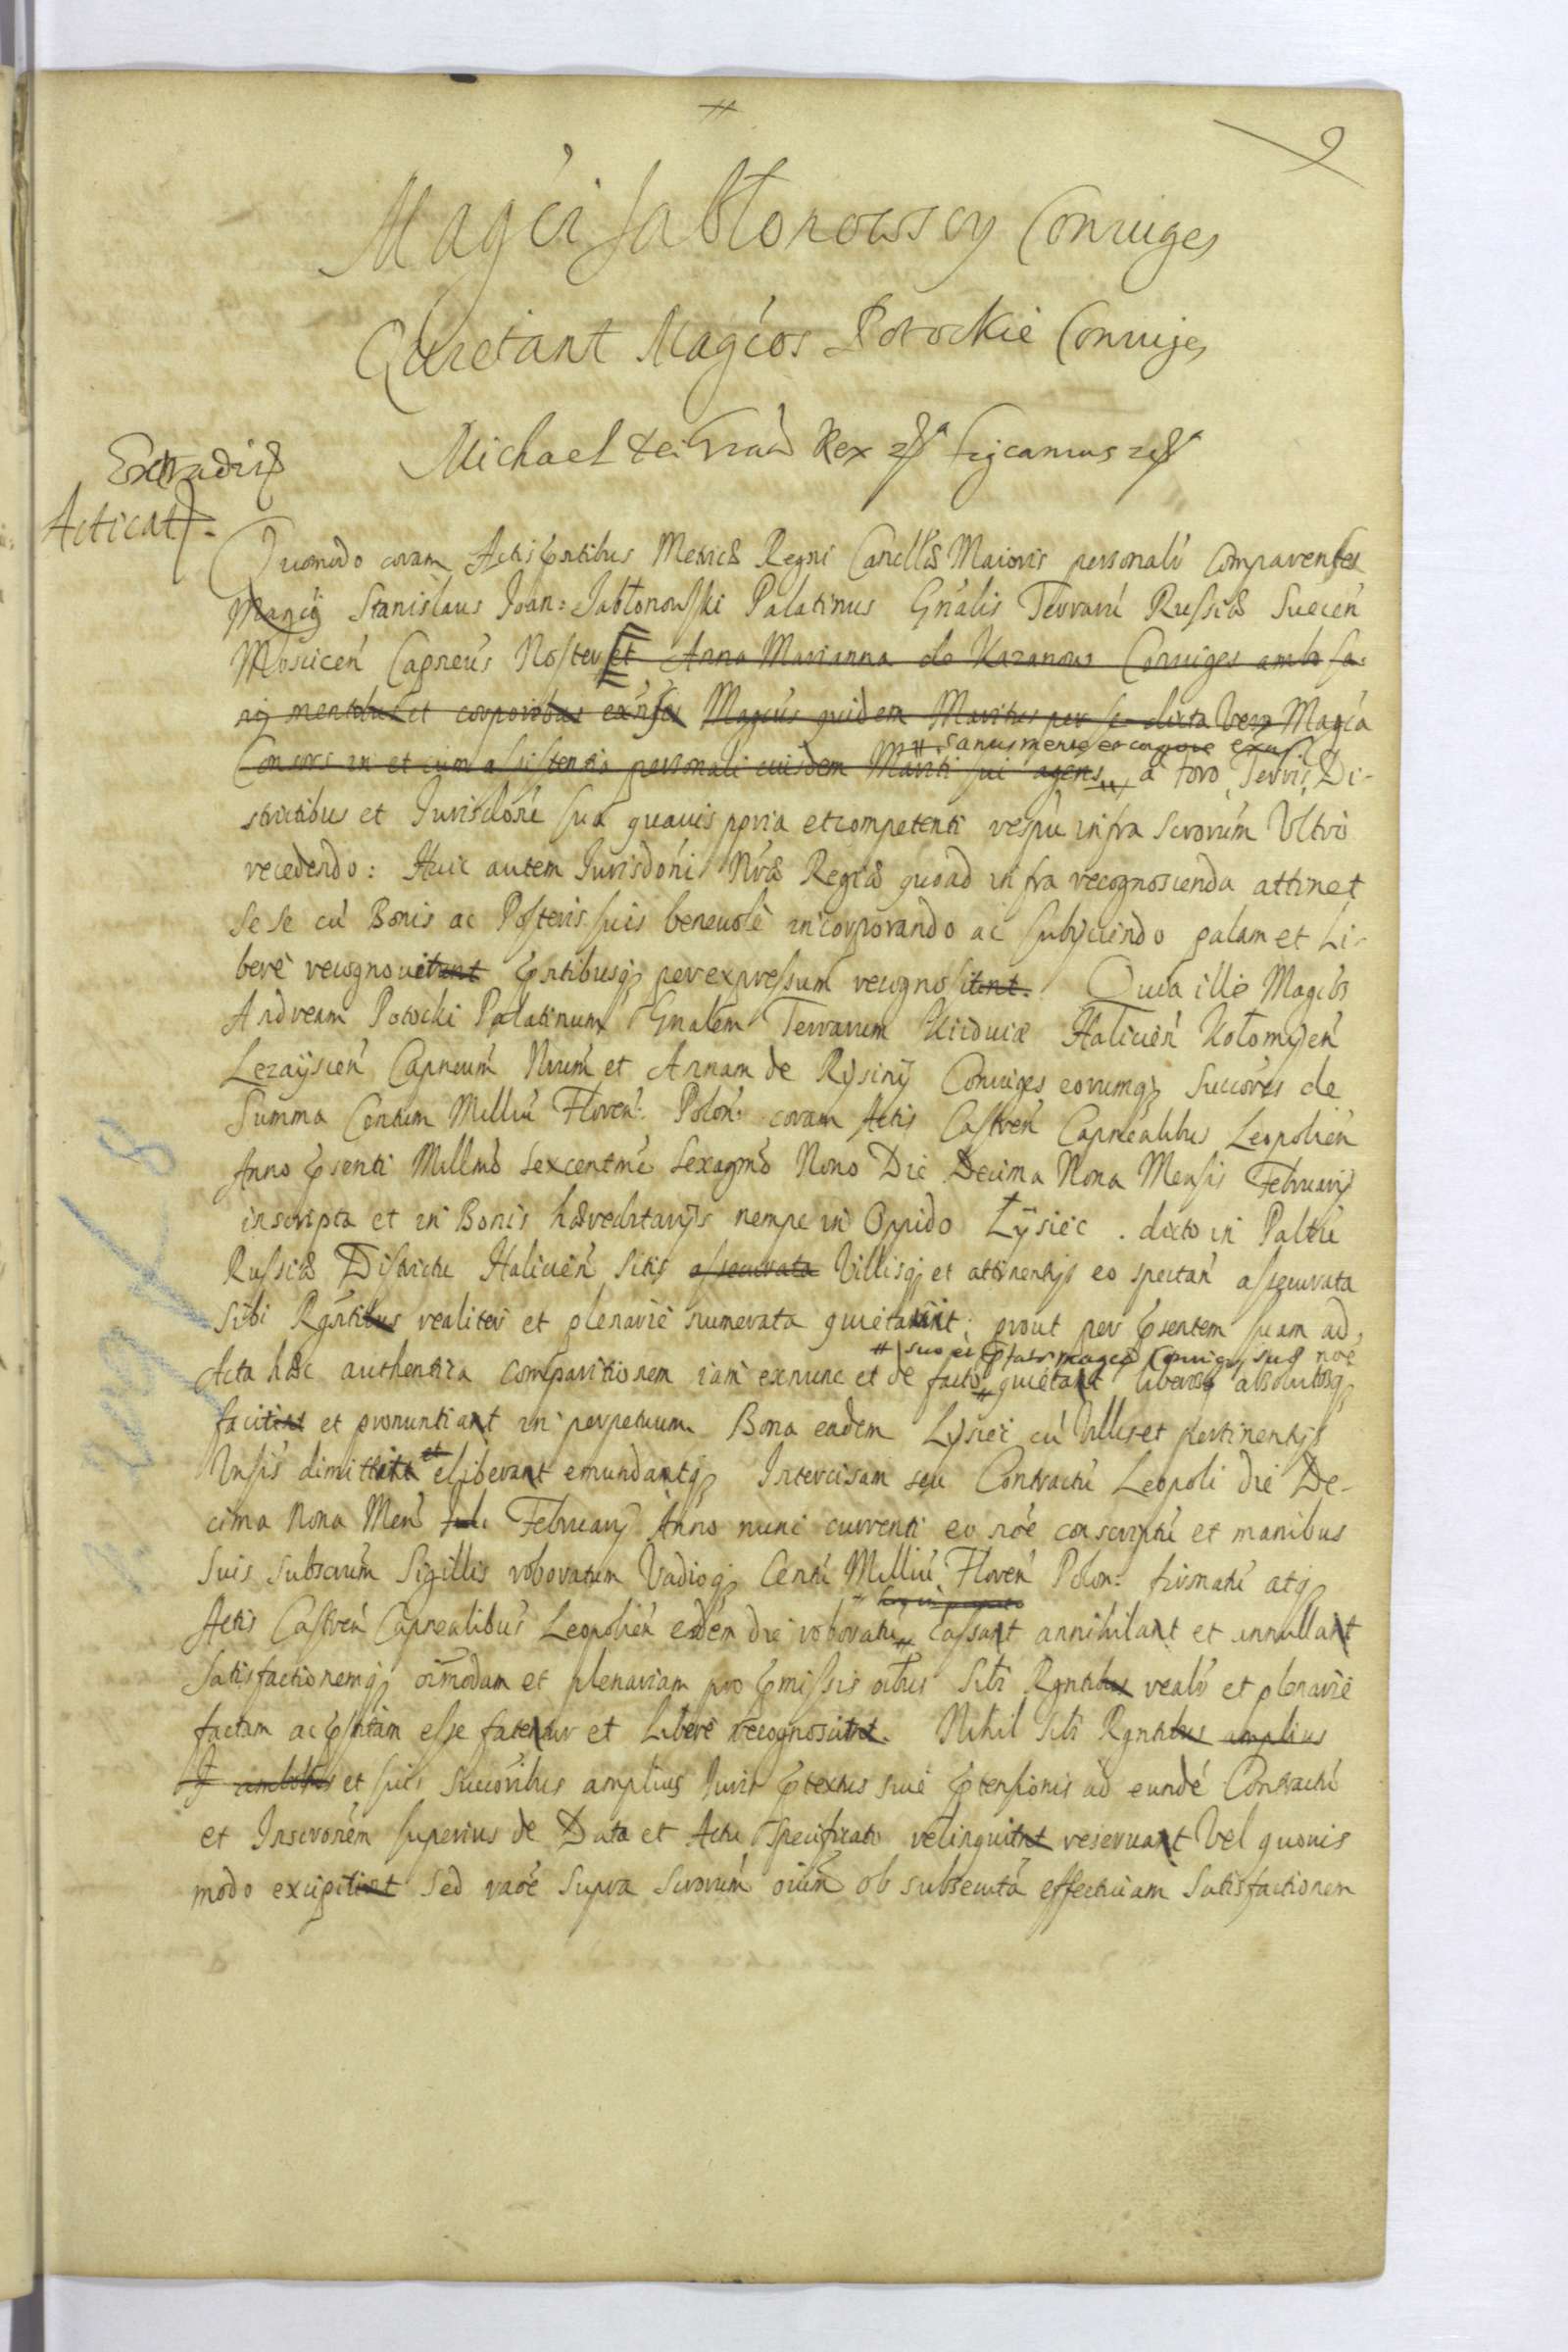 9
Magći Jabłonowscy Coniuges
Quietant Magćos Potockie Coniuges
Michael Dei Graã Rex Sigcamus
Extradit
Acticat
Quomodo coram Actis pntibus Metricæ Regni Cancellæ Maioris personalr comparentes
Stanislaus Joan: Jabłonowski Palatinus Gnalis Terrarũ Russiæ Suecen
Moscicen Capneus Noster et Anna Marianna de Kazanow Coniuges amb sa-
nis mentibus et corporibus exńtes Magcus quidem Maritus per se dicta Vero Magca
# sanus mente et corpore exns
Consors in et cum assistentia personali eiusdem Mariti sui agens a foro, Terris, Di-
strictibus et Jurisdõne sua quauis ppria et competenti respu infra scrorum Ultro
recedendo: Huic autem Jurisdõni Nræ Regiæ quoad infra recognoscenda attinet
Se se cũ Bonis ac Posteris suis beneuolè incorporando ac subijciendo palam et Li-
berè recognouerunt pntibusq per expressum recognoscunt. Quia ille Magcos
Andream Potocki Palatinum Gnalem Terrarum Kiiouiæ Halicien Kołomyen
Lezayscen Capneum Nrum et Annam de Rysiny Coniuges eorumq Succores de
Summa Centum Milliũ Floren: Polon: coram Actis Castren Capnealibus Leopolien
Anno psenti Millmo Sexcentmo Sexagmo Nono Die Decima Nona Mensis Februarij
inscripta et in Bonis hæreditarijs nempe in Oppido Łysiec dicto in Paltu
Russiæ Districtu Halicien sitis assecurata Villisq et attinentijs eo spectan assecurata
Sibi Rgntibus realiter et plenarie numerata quietarunt; prout per psentem suam ad
# suo et Magcæ Coniugis suæ noe
Acta hæc authentica comparitionem iam exnunc et de facto quietant liberosq absolutosq
faciunt et pronuntiant in perpetuum. Bona eadem Lysiec cũ Villis et pertinentijs
Ipsis dimittunt et eliberant emundantq Intercisam seu Contractũ Leopoli die De-
cima Nona Mens Februarij Anno nunc currenti eo noe conscriptũ et manibus
Suis subscrum Sigillis roboratum Vadioq Centũ Milliũ Floren Polon: firmatũ atq
Actis Castren Capnealibus Leopolien eadem die roboratũ cassant annihilant et annullant
Satisfactionemq oimodam et plenariam pro pmissis oibus Sibi Rgntibus realr et plenariè
factam ac pstitam esse fatentur et liberè recognoscunt. Nihil sibi Rgntibus amplius
et suis Succoribus amplius Juris ptextus siue ptensionis ad eundẽ Contractũ
et Inscronem superius de Data et Actu specificato relinquunt reseruant Vel quouis
modo excipiunt Sed raõe Supra scrorum oium ob subsecutã effectiuam Satisfactionem